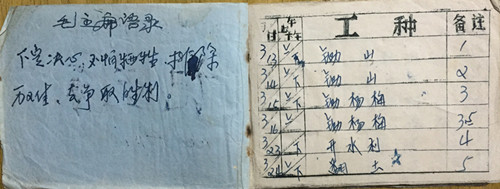 毛主席语录
下定决心, 不怕牺牲 排除
万难, 去争取胜利.
月/日 上午/下午 工种 备注
3/13 上/下 锄山 1
3/14 上/下 锄山 2
3/15 上/下 锄杨梅 3
3/16 上/下 锄杨梅 3.5
3/23 上/下 开水利 4
3/24 上/下 土 5